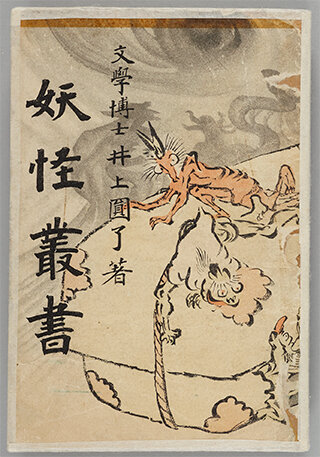 妖怪叢書
文學博士井上圓了著